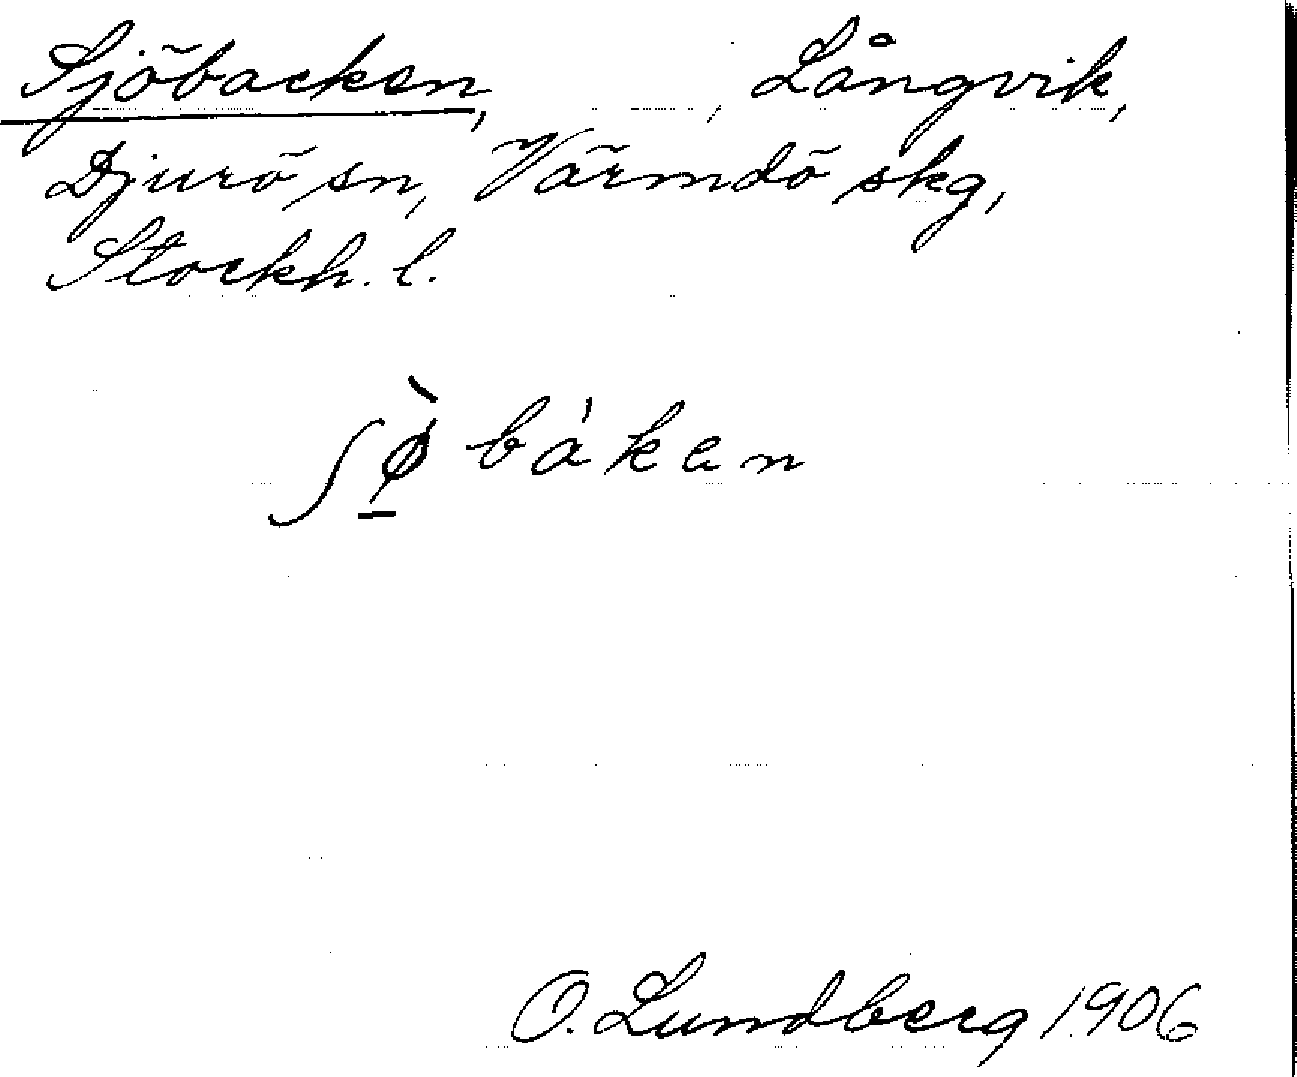 Sjöbacken, Långvik,
Djurö sn, Värmdö skg,
Stockh. l.
ʃø̱̀ bákɐn
O. Lundberg 1906